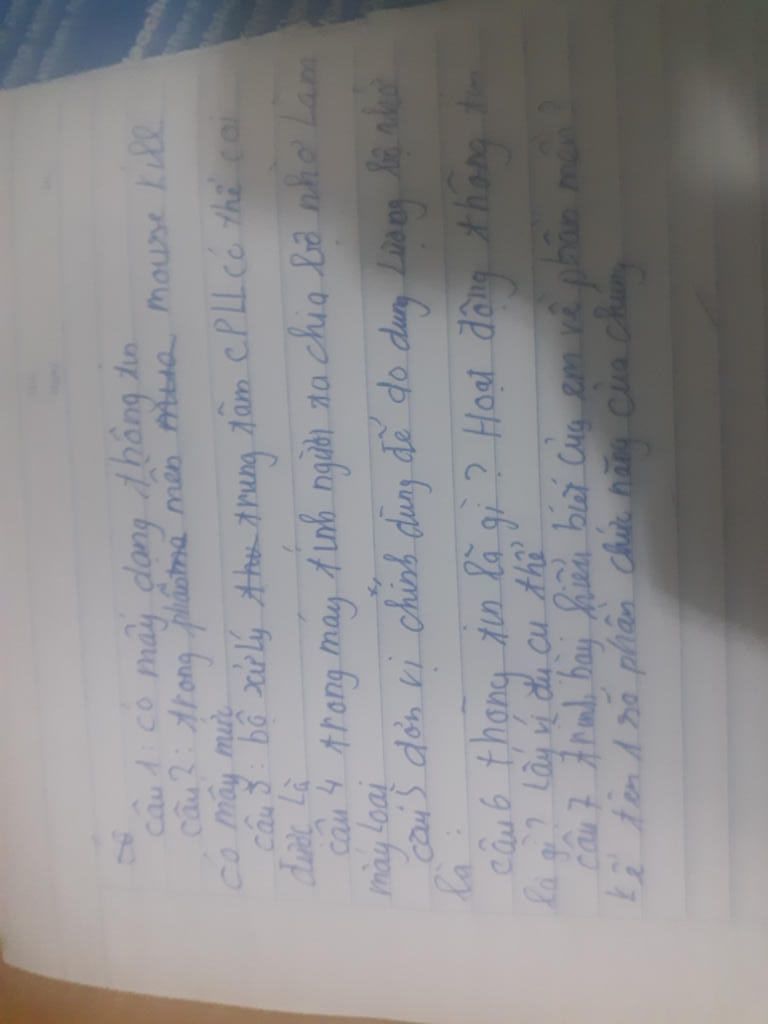 câu 1: có mấy dạng thông tin
câu 2: trong phần mền mouse kill
có mấy mức
câu 3: bộ xử lý trung tâm CPU có thể coi
được là
câu 4 trong máy tính người ta chia bộ nhớ làm
mấy loại
câu 5 đơn vị chính dùng để đo dung lượng bộ nhớ
là:
câu 6 thông tin là gì? Hoạt động thông tin
là gì? Lấy ví dụ cụ thể
câu 7 trình bày hiểu biết của em về phần mền?
kể tên 1 số phần chức năng của chúng